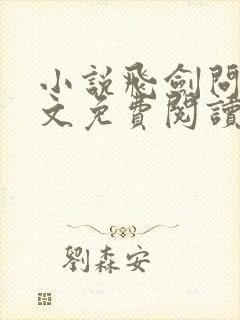 小說飛劍問
文免費閱讀
劉森安